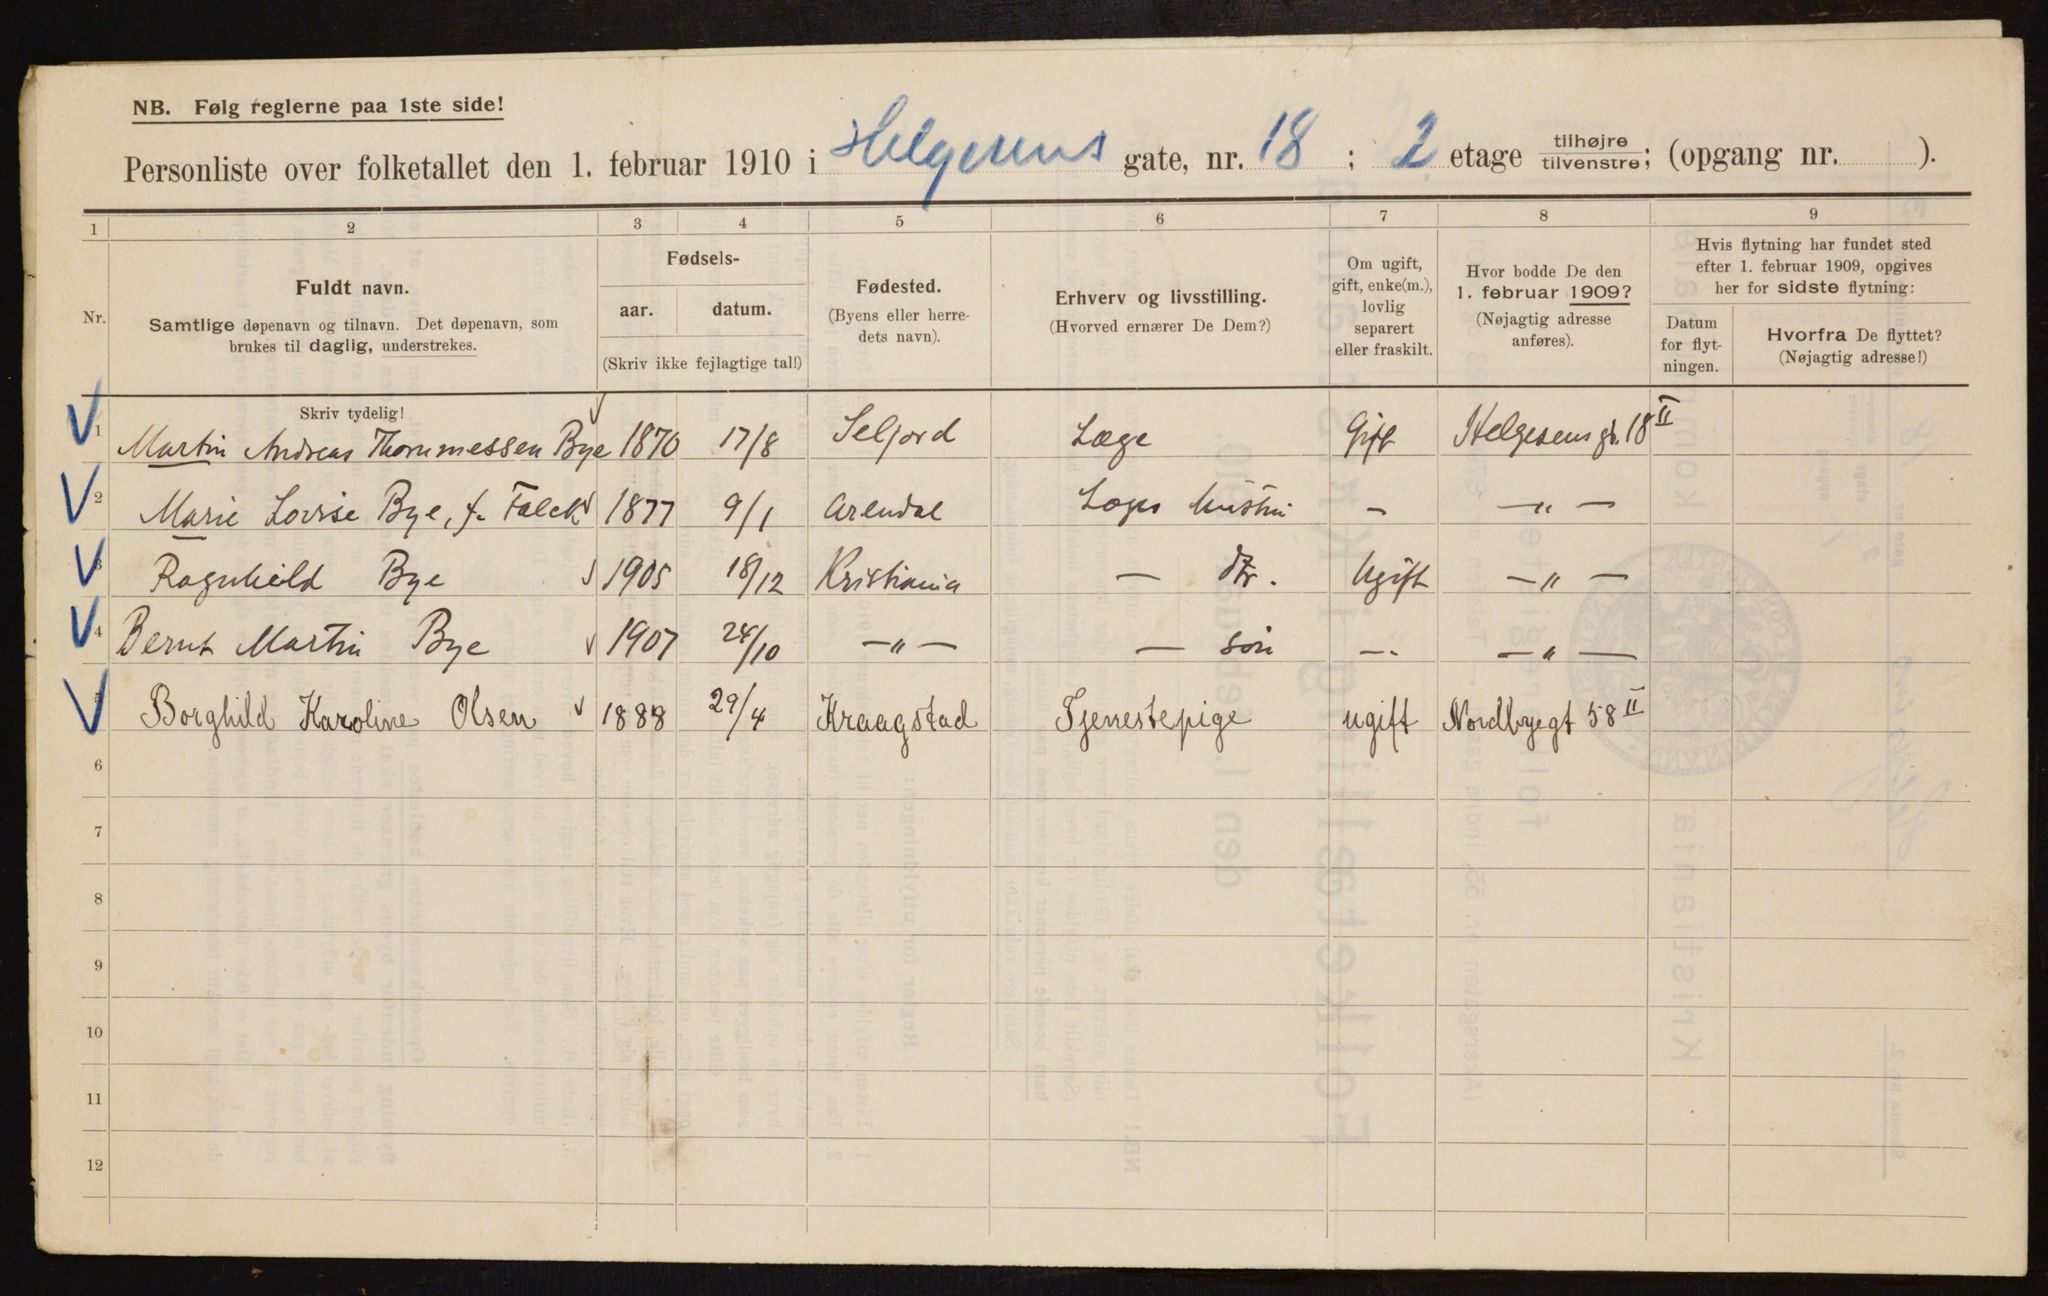 NB. Følg reglerne paa 1ste side!
Personliste over folketallet den 1. februar 1910 i Helgesens gate, nr. 18 ; 2 etage tilhøjre tilvenstre; (opgang nr. ).
1 2 3 4 5 6 7 8 9
Nr.
Fuldt navn.
Samtlige døpenavn og tilnavn. Det døpenavn, som
brukes til daglig, understrekes.
Fødsels-
aar. datum.
(Skriv ikke fejlagtige tal!)
Fødested.
(Byens eller herre-
dets navn).
Erhverv og livsstilling.
(Hvorved ernærer De Dem?)
Om ugift,
gift, enke(m.),
lovlig
separert
eller fraskilt.
Hvor bodde De den
1. februar 1909?
(Nøjagtig adresse
anføres).
Hvis flytning har fundet sted
efter 1. februar 1909, opgives
her for sidste flytning:
Datum
for flyt-
ningen.
Hvorfra De flyttet?
(Nøjagtig adresse!)
Skriv tydelig!
1 Martin Andreas Thommessen Bye 1870 17/8 Seljord Læge Gift Helgesens gt. 18 II
2 Marie Lovise Bye, f. Falck 1877 9/1 Arendal Læges hustru - -"-
3 Ragnhild Bye 1905 18/12 Kristiania - dtr. Ugift -"-
4 Bernt Martin Bye 1907 24/10 -"- - søn -"- -"-
Borghild Karoline Olsen 1888 29/4 Kraagstad Tjenestepige ugift Nordbyegt 58 II
6
7
8
9
10
11
12